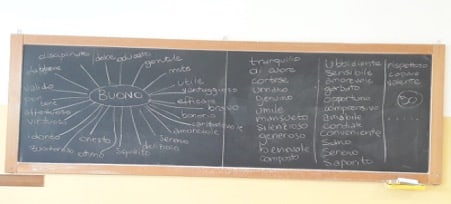 disciplinato
dolce
educato
gentile
dabbene
mite
utile
vantaggioso
efficace
bravo
bonario
caritatevole
amorevole
sereno
delizioso
squisito
ottimo
onesto
idoneo
virtuoso
affettuoso
per bene
valido
BUONO
tranquillo
di cuore
cortese
umano
genuino
umile
mansueto
silenzioso
generoso
benevole
composto
ubbidiente
sensibile
amorevole
garbato
opportuno
comprensivo
amabile
cordiale
conveniente
sano
sereno
saporito
rispettoso
capace
50